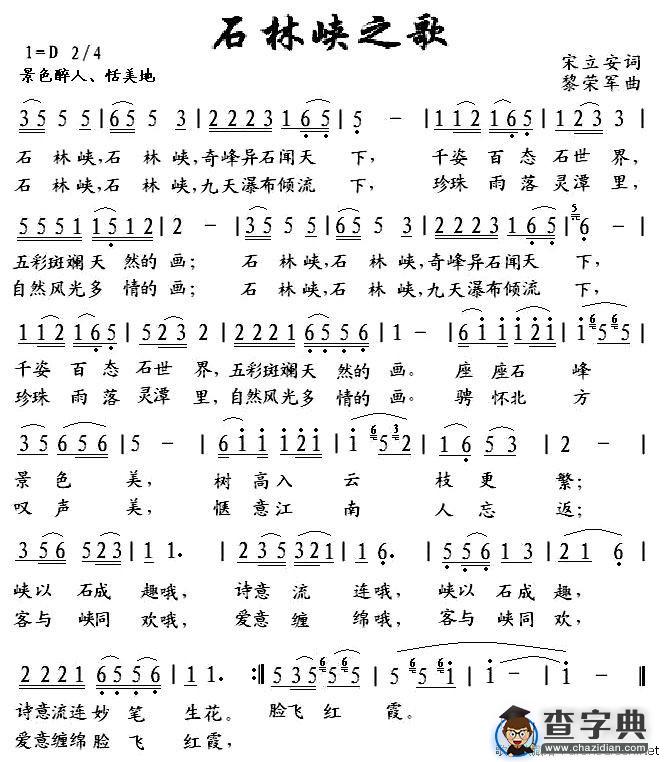 石林峡之歌
1=D 2/4
宋立安词
景色醉人、恬美地
黎荣军曲
3 5 5 5 | 6 5 5 3 5 | 2 2 2 3 1 6 5 | 5 － | 1 1 2 1 6 5 5 | 1 2 3 3 |
石林峡,石林峡,奇峰异石闻天下,千姿百态石世界,
石林峡,石林峡,九天瀑布倾流下,珍珠雨落灵潭里,
5 5 5 1 1 5 1 2 | 2 － | 3 5 5 5 | 6 5 5 3 5 | 2 2 2 3 1 6 5 | 6 － |
五彩斑斓天然的画;石林峡,石林峡,奇峰异石闻天下,
自然风光多情的画;石林峡,石林峡,九天瀑布倾流下,
1 1 2 1 6 5 | 5 2 3 2 | 2 2 2 1 6 5 5 6 | 1 － | 6 i i i 2 i | i 5 5 |
千姿百态石世界,五彩斑斓天然的画。座座石峰
珍珠雨落灵潭里,自然风光多情的画。骋怀北方
3 5 6 5 6 | 5 － | 6 i i i 2 i | i － | 1 6 5 3 | 2 － |
景色美,树高入云枝更繁;
叹声美,惬意江南人忘返;
3 5 6 5 2 3 | 1 1. | 2 3 5 3 2 1 | 6 1. | 5 5 6 1 3 | 2 1 6 |
峡以石成趣哦,诗意流连哦,峡以石成趣,
客与峡同欢哦,爱意缠绵哦,客与峡同欢,
2 2 2 1 6 5 5 6 | 1 1. :‖ 5 3 5 5 5 | 5 5 i | i － | i － ‖
诗意流连妙笔生花。脸飞红霞。
爱意缠绵脸飞红霞,
查字典
www.chazidian.com